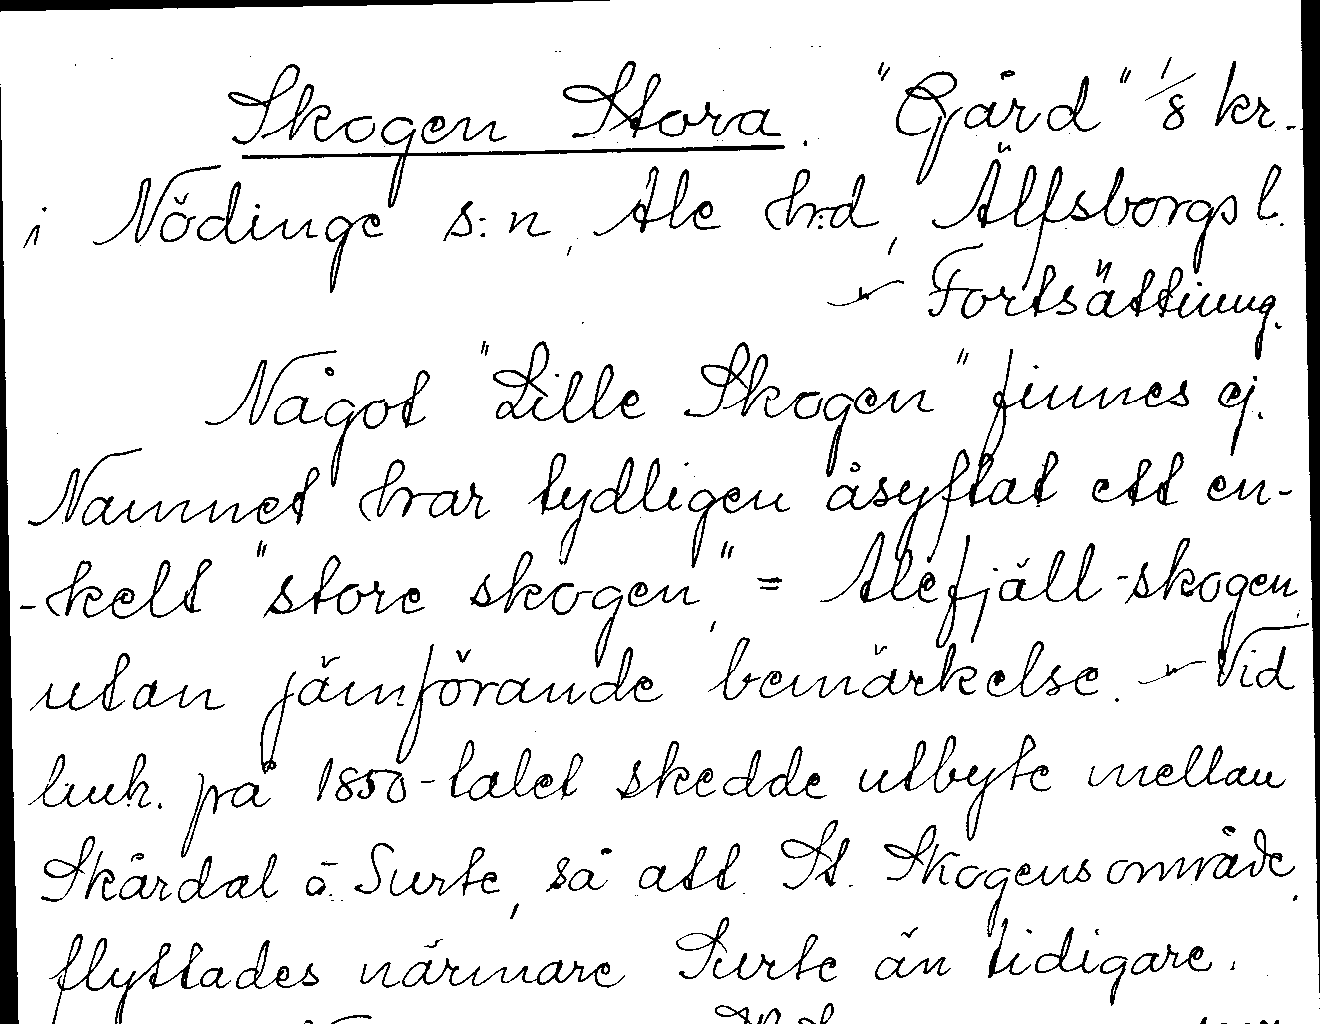 Skogen Stora. "Gård" 1/8 kr.
i Nödinge s:n, Ale h:d, Älfsborgs l.
— Fortsättning.
Något "Lille Skogen" finnes ej.
Namnet har tydligen åsyftat ett en-
-kelt "store skogen," = Alefjäll-skogen,
utan jämförande bemärkelse. — Vid
på 1850-talet skedde utbyte mellan
Skårdal o. Surte, så att St. Skogens område
flyttades närmare Surte än tidigare.